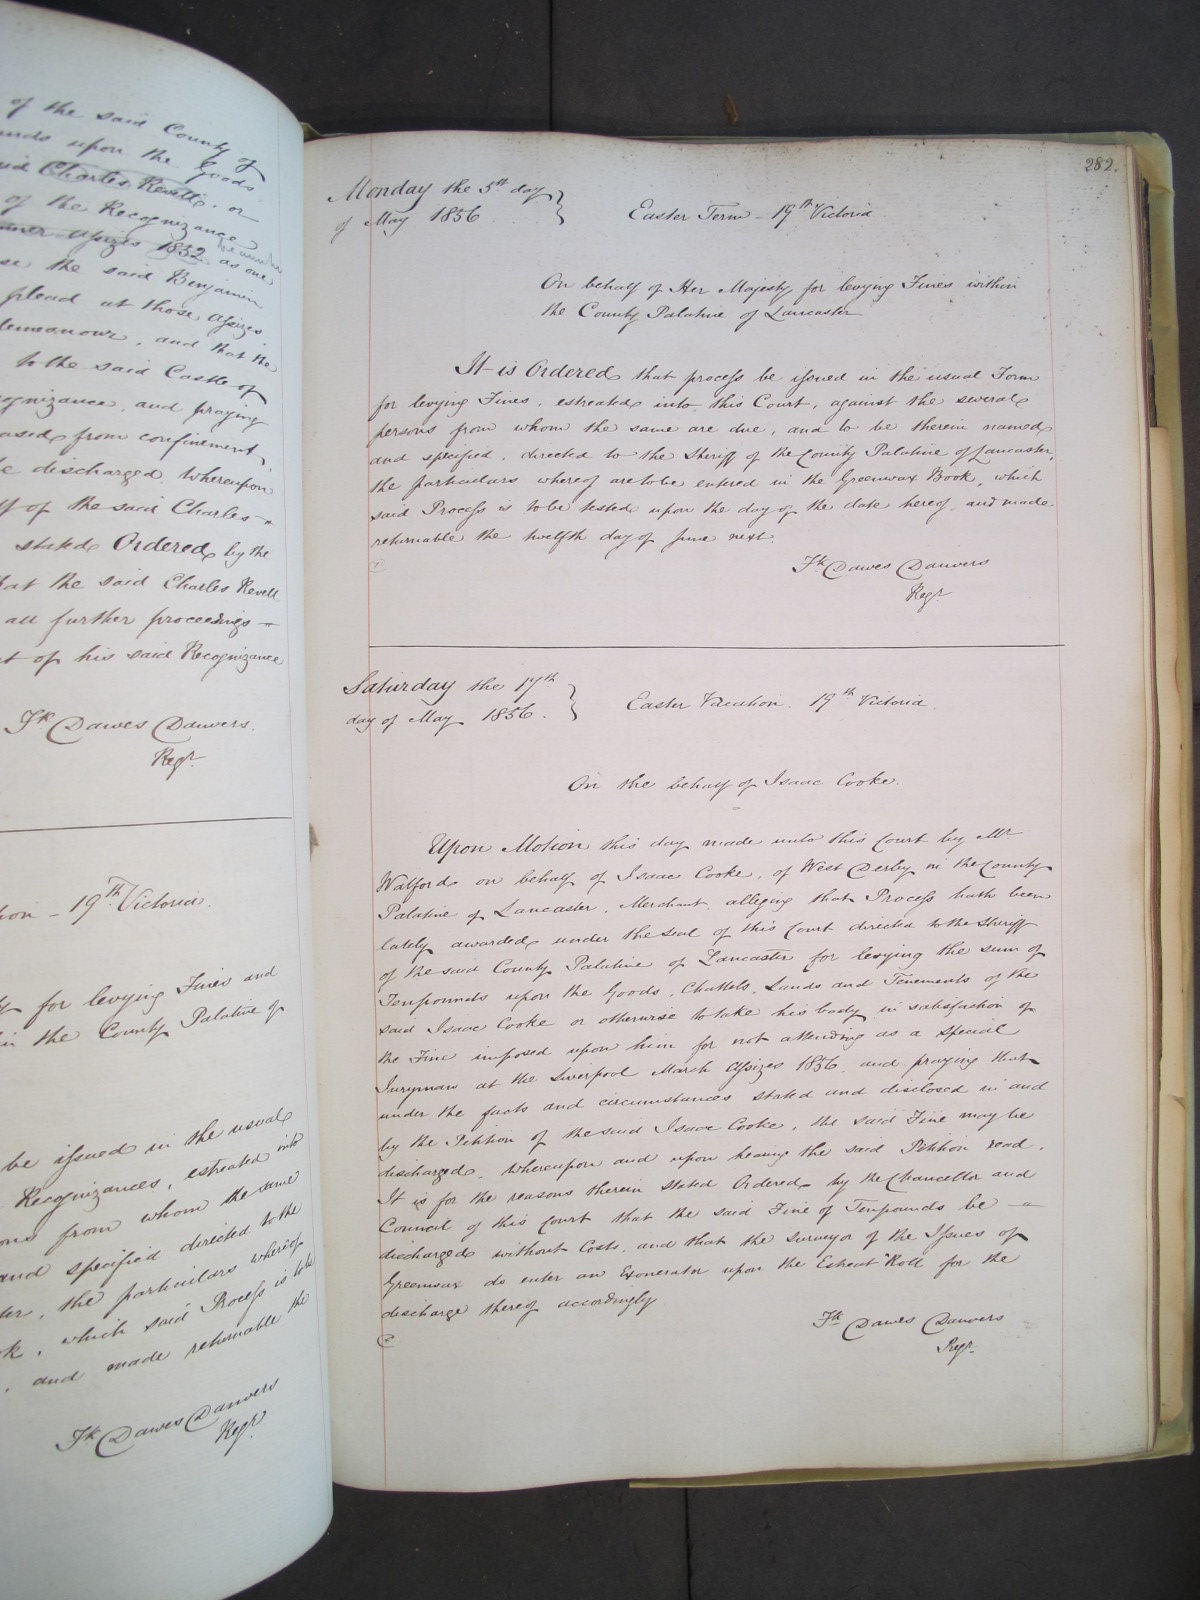 of the said County of
upon the Goods
Charles Revell, or
of the Recognizance
Assizes 1852 as one
the said Benjamin
plead at those Assizes
and that the
to the said Castle of
and praying
from confinement,
discharged. Whereupon
of the said Charles
stated Ordered by the
the said Charles Revell
all further proceedings
of his said Recognizance
Fk. Dawes Danvers.
Regr.
19th Victoria.
for levying Fines and
in the County Palatine of
be issued in the usual
Recognizances, estreated into
from whom the same
and specified directed to the
the particulars whereof
which said Process is to be
and made returnable the
Fk. Dawes Danvers
Regr.
282.
Monday the 5th day
of May 1856
Easter Term - 19th Victoria
On behalf of Her Majesty for levying Fines within
the County Palatine of Lancaster
It is Ordered that process be issued in the usual Form
for levying Fines, estreated into this Court, against the several
persons from whom the same are due, and to be therein named
and specified, directed to the Sheriff of the County Palatine of Lancaster,
the particulars whereof are to be entered in the Greenwax Book, which
said Process is to be tested upon the day of the date hereof, and made
returnable the twelfth day of June next.
Fk. Dawes Danvers
Regr.
Saturday the 17th
day of May 1856.
Easter Vacation. 19th Victoria.
On the behalf of Isaac Cooke.
Upon Motion this day made unto this Court by Mr
Walford on behalf of Isaac Cooke, of West Derby in the County
Palatine of Lancaster, Merchant, alleging that Process hath been
lately awarded under the Seal of this Court directed to the Sheriff
of the said County Palatine of Lancaster for levying the sum of
Tenpounds upon the Goods, Chattels, Lands and Tenements of the
said Isaac Cooke or otherwise to take his body in satisfaction of
the Fine imposed upon him for not attending as a special
Juryman at the Liverpool March Assizes 1856. and praying that
under the facts and circumstances stated and disclosed in and
by the Petition of the said Isaac Cooke, the said Fine may be
discharged. Whereupon and upon hearing the said Petition read,
It is for the reasons therein stated Ordered by the Chancellor and
Council of this Court that the said Fine of Tenpounds be
discharged without Costs, and that the Surveyor of the Issues of
Greenwax do enter an Exonerator upon the Estreat Roll for the
discharge thereof accordingly
Fk. Dawes Danvers
Regr.